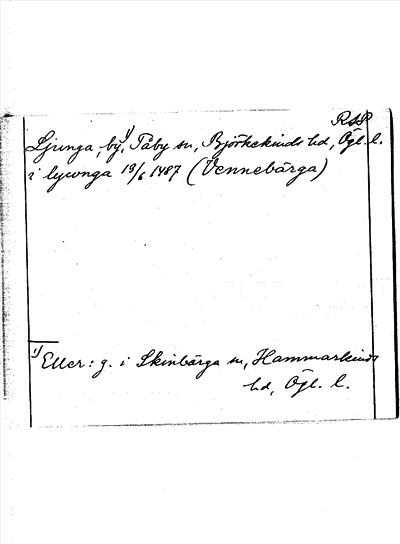 RAP
Ljunga, by,¹⁾ Tåby sn, Björkekinds hd, Ögl. l.
i lywnga 19/6 1487 (Vennebärga)
¹⁾ Eller: g. i Skinbärga sn, Hammarkinds
hd, Ögl. l.